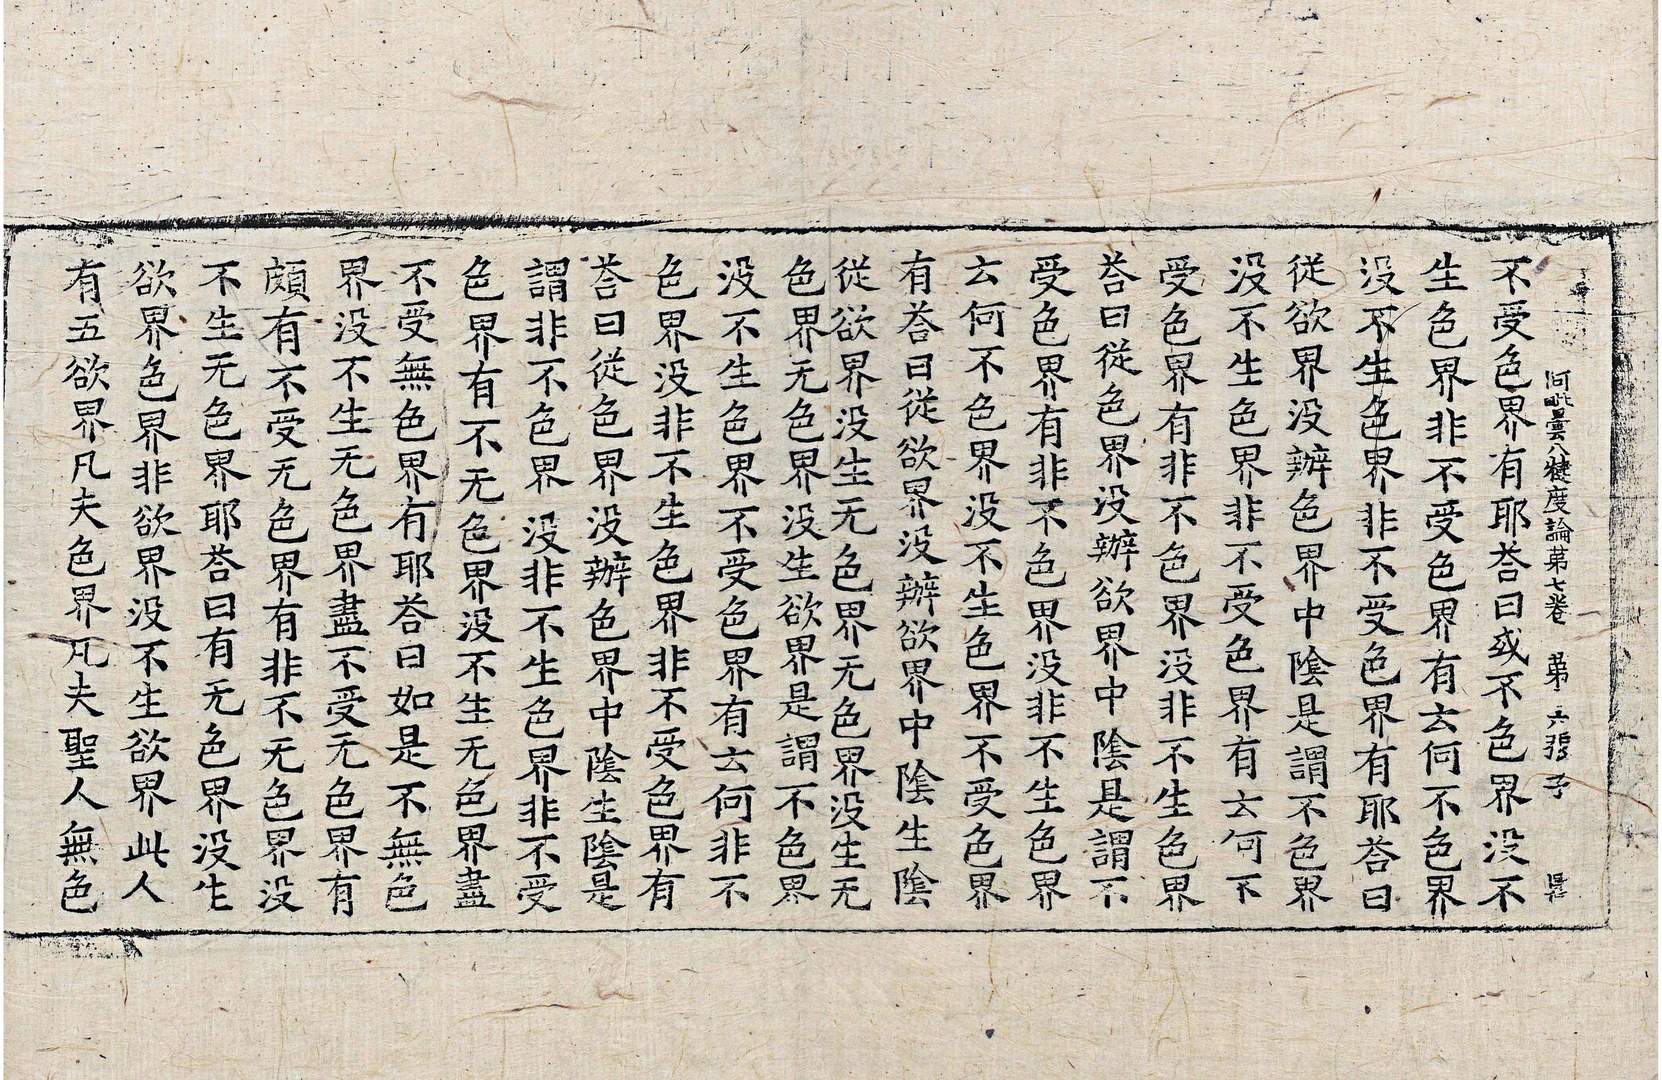 阿毗曇八犍度論苐七卷 苐六張
不受色界有耶荅曰或不色界没不
生色界非不受色界有云何不色界
没不生色界非不受色界有耶荅曰
從欲界没辦色界中陰是謂不色界
没不生色界非不受色界有云何不
受色界有非不色界没非不生色界
荅曰從色界没辦欲界中陰是謂不
受色界有非不色界没非不生色界
云何不色界没不生色界不受色界
有荅曰從欲界没辦欲界中陰生陰
從欲界没生无色界无色界没生无
色界无色界没生欲界是謂不色界
没不生色界不受色界有云何非不
色界没非不生色界非不受色界有
荅曰從色界没辦色界中陰生陰是
謂非不色界没非不生色界非不受
色界有不无色界没不生无色界盡
不受無色界有耶荅曰如是不無色
界没不生无色界盡不受无色界有
頗有不受无色界有非不无色界没
不生无色界耶荅曰有无色界没生
欲界色界非欲界没不生欲界此人
有五欲界凡夫色界凡夫聖人無色